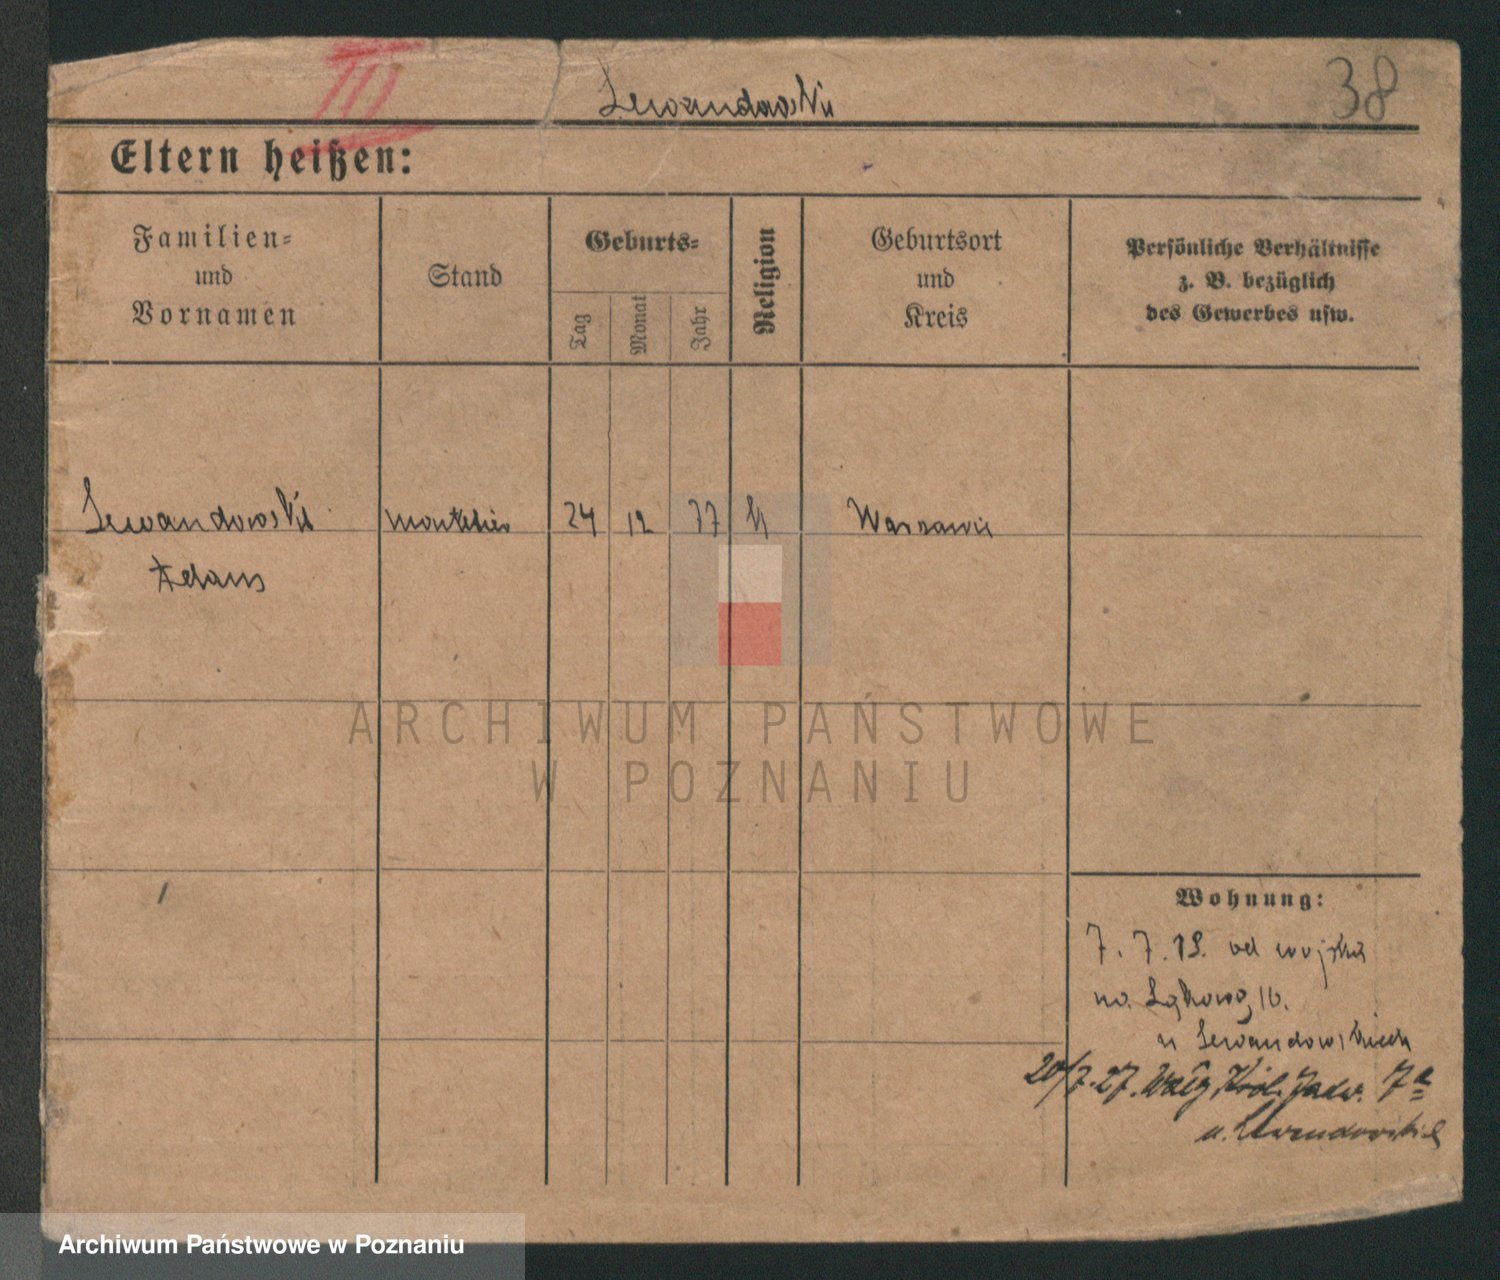 III
Lewandowski
38
Eltern heißen:
Familien=
und
Vornamen
Stand
Geburts=
Tag
Monat
Jahr
Religion
Geburtsort
und
Kreis
Persönliche Verhältnisse
z. B. bezüglich
des Gewerbes usw.
Lewandowski
24
12
77
k
Adam
ARCHIWUM PAŃSTWOWE
W POZNANIU
Wohnung:
7. 7. 19. od wojska
na Łąkową 10.
u Lewandowskich
20/7.27. Wały Król. Jadw. 7a
u. Lewandowskiej
Archiwum Państwowe w Poznaniu